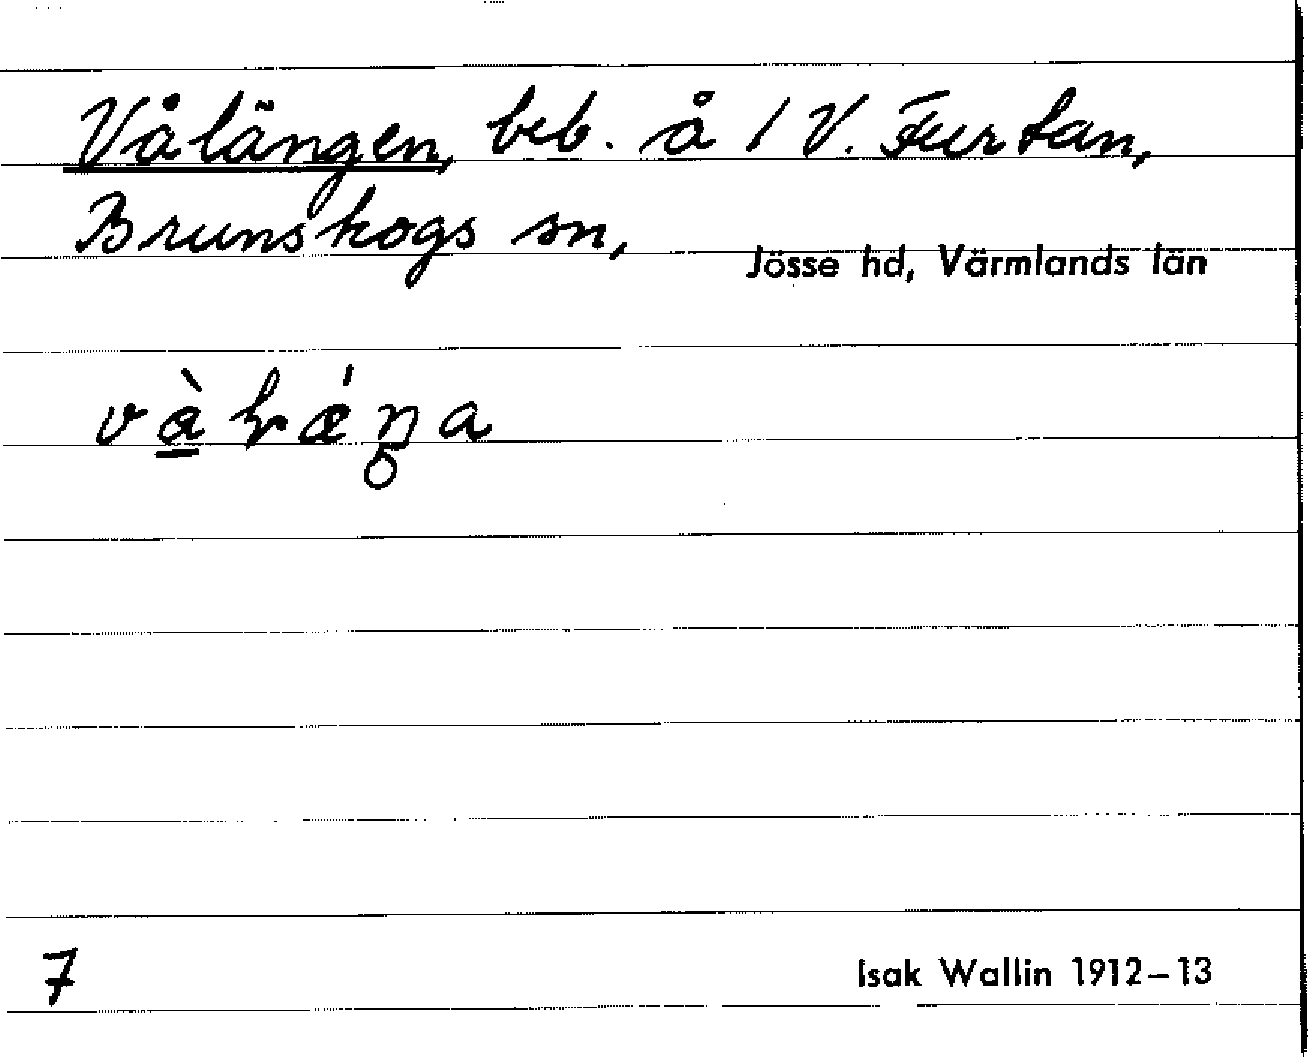 Vålängen, beb. å 1 V. Furtan,
Brunskogs sn,
Jösse hd, Värmlands län
7
Isak Wallin 1912–13